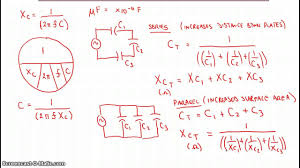 Xc = 1 / (2πfC)
μF = x10⁻⁶ F
C1
C2
C3
SERIES (INCREASES DISTANCE BTWN PLATES)
CT = 1 / ((1/C1)+(1/C2)+(1/C3))
XCT = XC1 + XC2 + XC3
(Ω)
1
Xc 2π f C
C = 1 / (2πf Xc)
C1 C2 C3
PARALLEL (INCREASED SURFACE AREA)
CT = C1 + C2 + C3
XCT = 1 / ((1/XC1)+(1/XC2)+(1/XC3))
(Ω)
Screencast-O-Matic.com